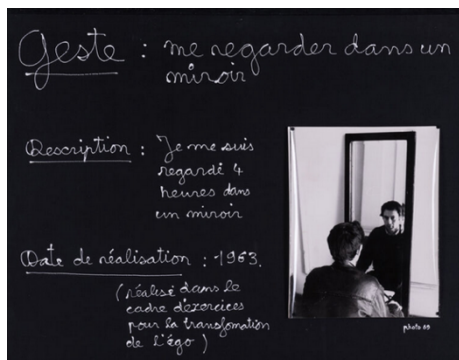 Geste : me regarder dans un
miroir
Description : Je me suis
regardé 4
heures dans
un miroir
Date de réalisation : 1963.
(réalisé dans le
cadre d'exercices
pour la transfomation
de l'égo)
photo 03